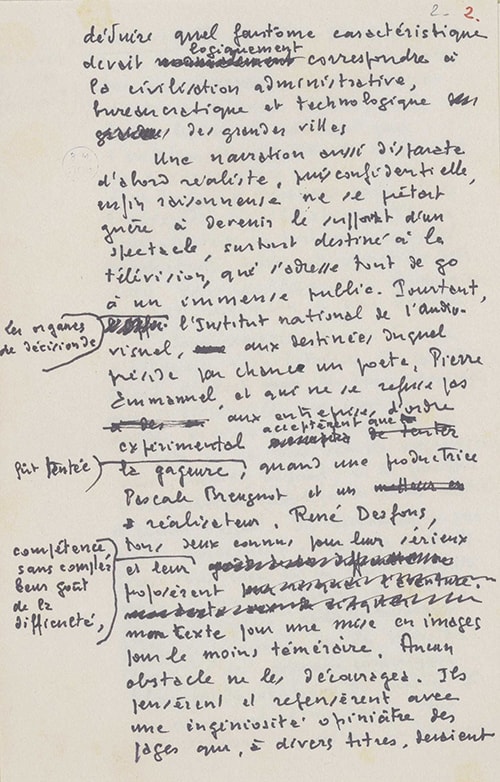 2. 2.
déduire quel fantôme caractéristique
logiquement
devait correspondre à
la civilisation administrative,
bureaucratique et technologique
des grandes villes
Une narration aussi disparate
d'abord réaliste, puis confidentielle,
enfin raisonneuse ne se prêtait
guère à devenir le support d'un
spectacle, surtout destiné à la
télévision, qui s'adresse tout de go
à un immense public. Pourtant,
les organes
de décision de
l'Institut national de l'audio-
visuel, aux destinées duquel
préside par chance un poète, Pierre
Emmanuel, et qui ne se refuse pas
aux entreprises d'ordre
acceptèrent que
expérimental de tenter
fût tentée
la gageure, quand une productrice
Pascale Breugnot et un
réalisateur, René Desfons,
tous deux connus pour leur sérieux
compétence,
sans compter
leur goût
de la
difficulté,
et leur
proposèrent
mon texte pour une mise en images
pour le moins téméraire. Aucun
obstacle ne les découragea. Ils
pensèrent et repensèrent avec
une ingéniosité opiniâtre des
pages que, à divers titres, devaient